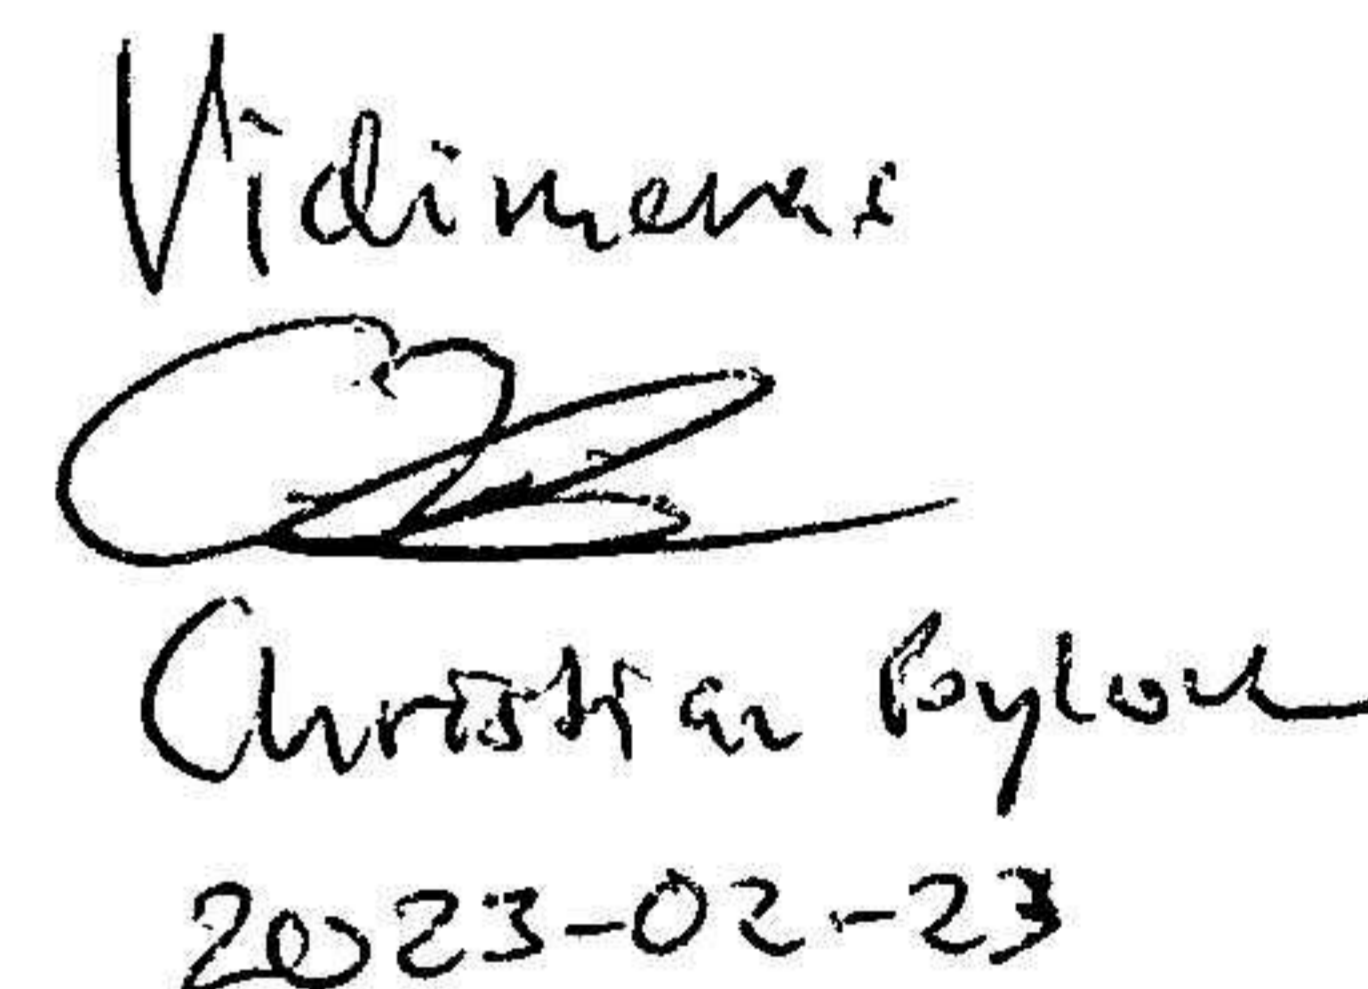 Vidimeras
Christian
2023-02-23